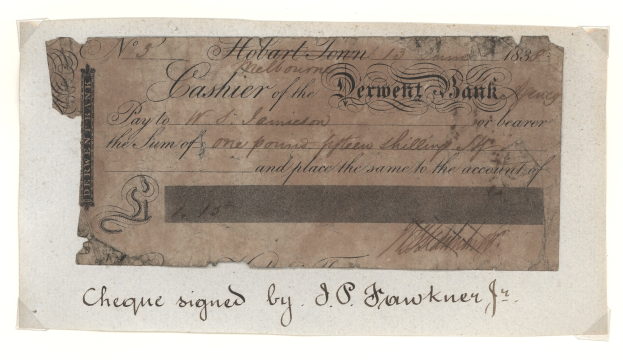 No 3 Hobart Town 13 June 1838
Melbourne
Cashier of the Derwent Bank Agency
Pay to W. S. Jamieson or bearer
the Sum of one pound fifteen shillings
and place the same to the account of
£ 1. 15
DERWENT BANK
Cheque signed by J. P. Fawkner Jr.